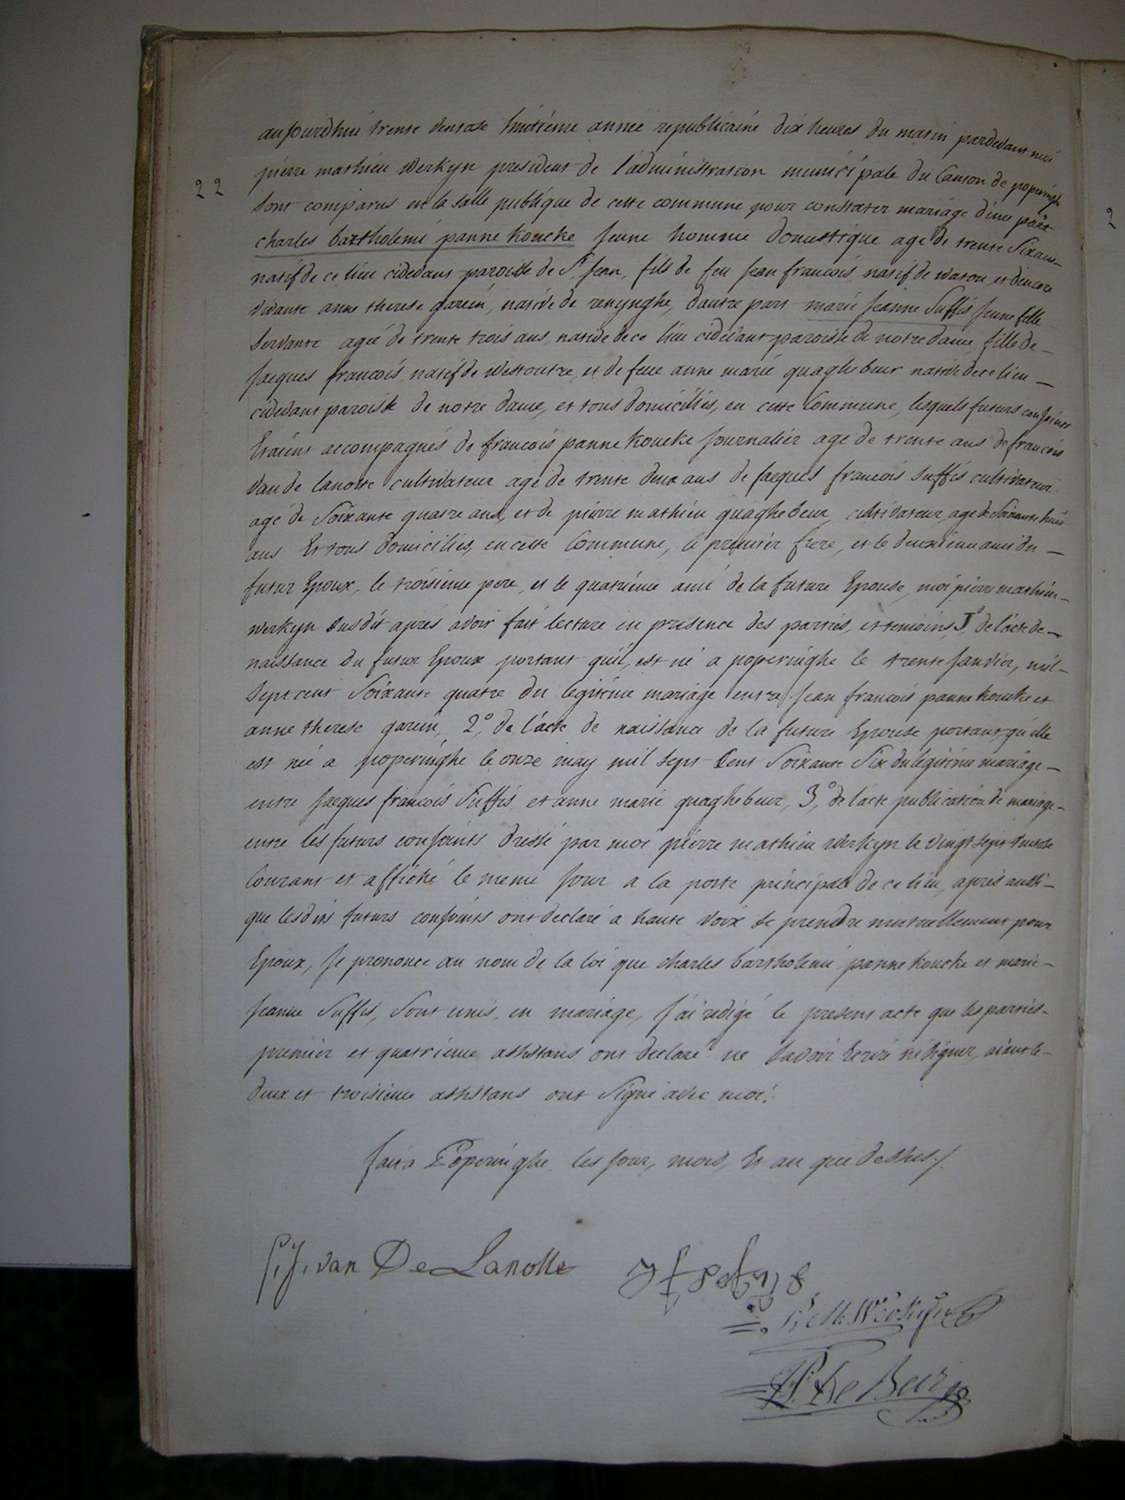 aujourdhui trente ventose huitieme année republicaine dix heures du matin pardevant moi
22
pierre mathieu werkyn president de l'administration municipale du Canton de poperinghe
sont comparus en la salle publique de cette commune pour constater mariage d'une part
charles bartholemi pannekoucke jeune homme domestique agé de trente six ans
natif de ce lieu cidevant paroisse de St Jean, fils de feu jean francois natif de watou, et d'encore
vivante anne therese garein, native de renynghe, d'autre part marie jeanne Suffis jeune fille
servante agée de trente trois ans native de ce lieu cidevant paroisse de notre dame fille de
jacques francois natif de westoutre, et de feue anne marie quaghebeur native de ce lieu
cidevant paroisse de notre dame, et tous domiciliés, en cette Commune, lesquels futurs conjoints
Etaient accompagnés de francois pannekoucke journalier agé de trente ans de francois
van de lanotte cultivateur agé de trente deux ans de jacques francois suffis cultivateur
agé de Soixante quatre ans, et de pierre mathieu quaghebeur, cultivateur, agé de Soixante
ans Et tous domiciliés, en cette Commune, le premier frere, et le deuxieme ami du
futur Epoux, le troisieme pere, et le quatrieme ami de la future Epouse, moi pierre mathieu
werkyn susdit après avoir fait lecture en presence des parties, et temoins, 1° de l'acte de
naissance du futur Epoux portant qu'il, est né a poperinghe le trente janvier, mil
sept cent Soixante quatre du legitime mariage entre jean francois pannekoucke et
anne therese garein, 2° de l'acte de naissance de la future Epouse portant qu'elle
est née a poperinghe le onze may mil sept Cent Soixante Six du legitime mariage
entre jacques francois Suffis et anne marie quaghebeur, 3° de l'acte publication de mariage
entre les futurs conjoints dressé par moi pierre mathieu werkyn le vingt sept ventose
Courant et affiché le meme jour a la porte principale de ce lieu, après aussi
que lesdits futurs conjoints ont declaré a haute voix se prendre mutuellement pour
Epoux, je prononce au nom de la loi que charles bartholemi pannekoucke et marie
jeanne Suffis, Sont unis, en mariage, j'ai redigé le present acte que les parties
premier et quatrieme assistans ont declaré ne Savoir Ecrire ni Signer, aiant le
deux et troisieme assistans ont Signé avec moi.
fait a Poperinghe les jour, mois, Et an que dessus./.
f. j. van De Lanotte
P: M: Werkyn